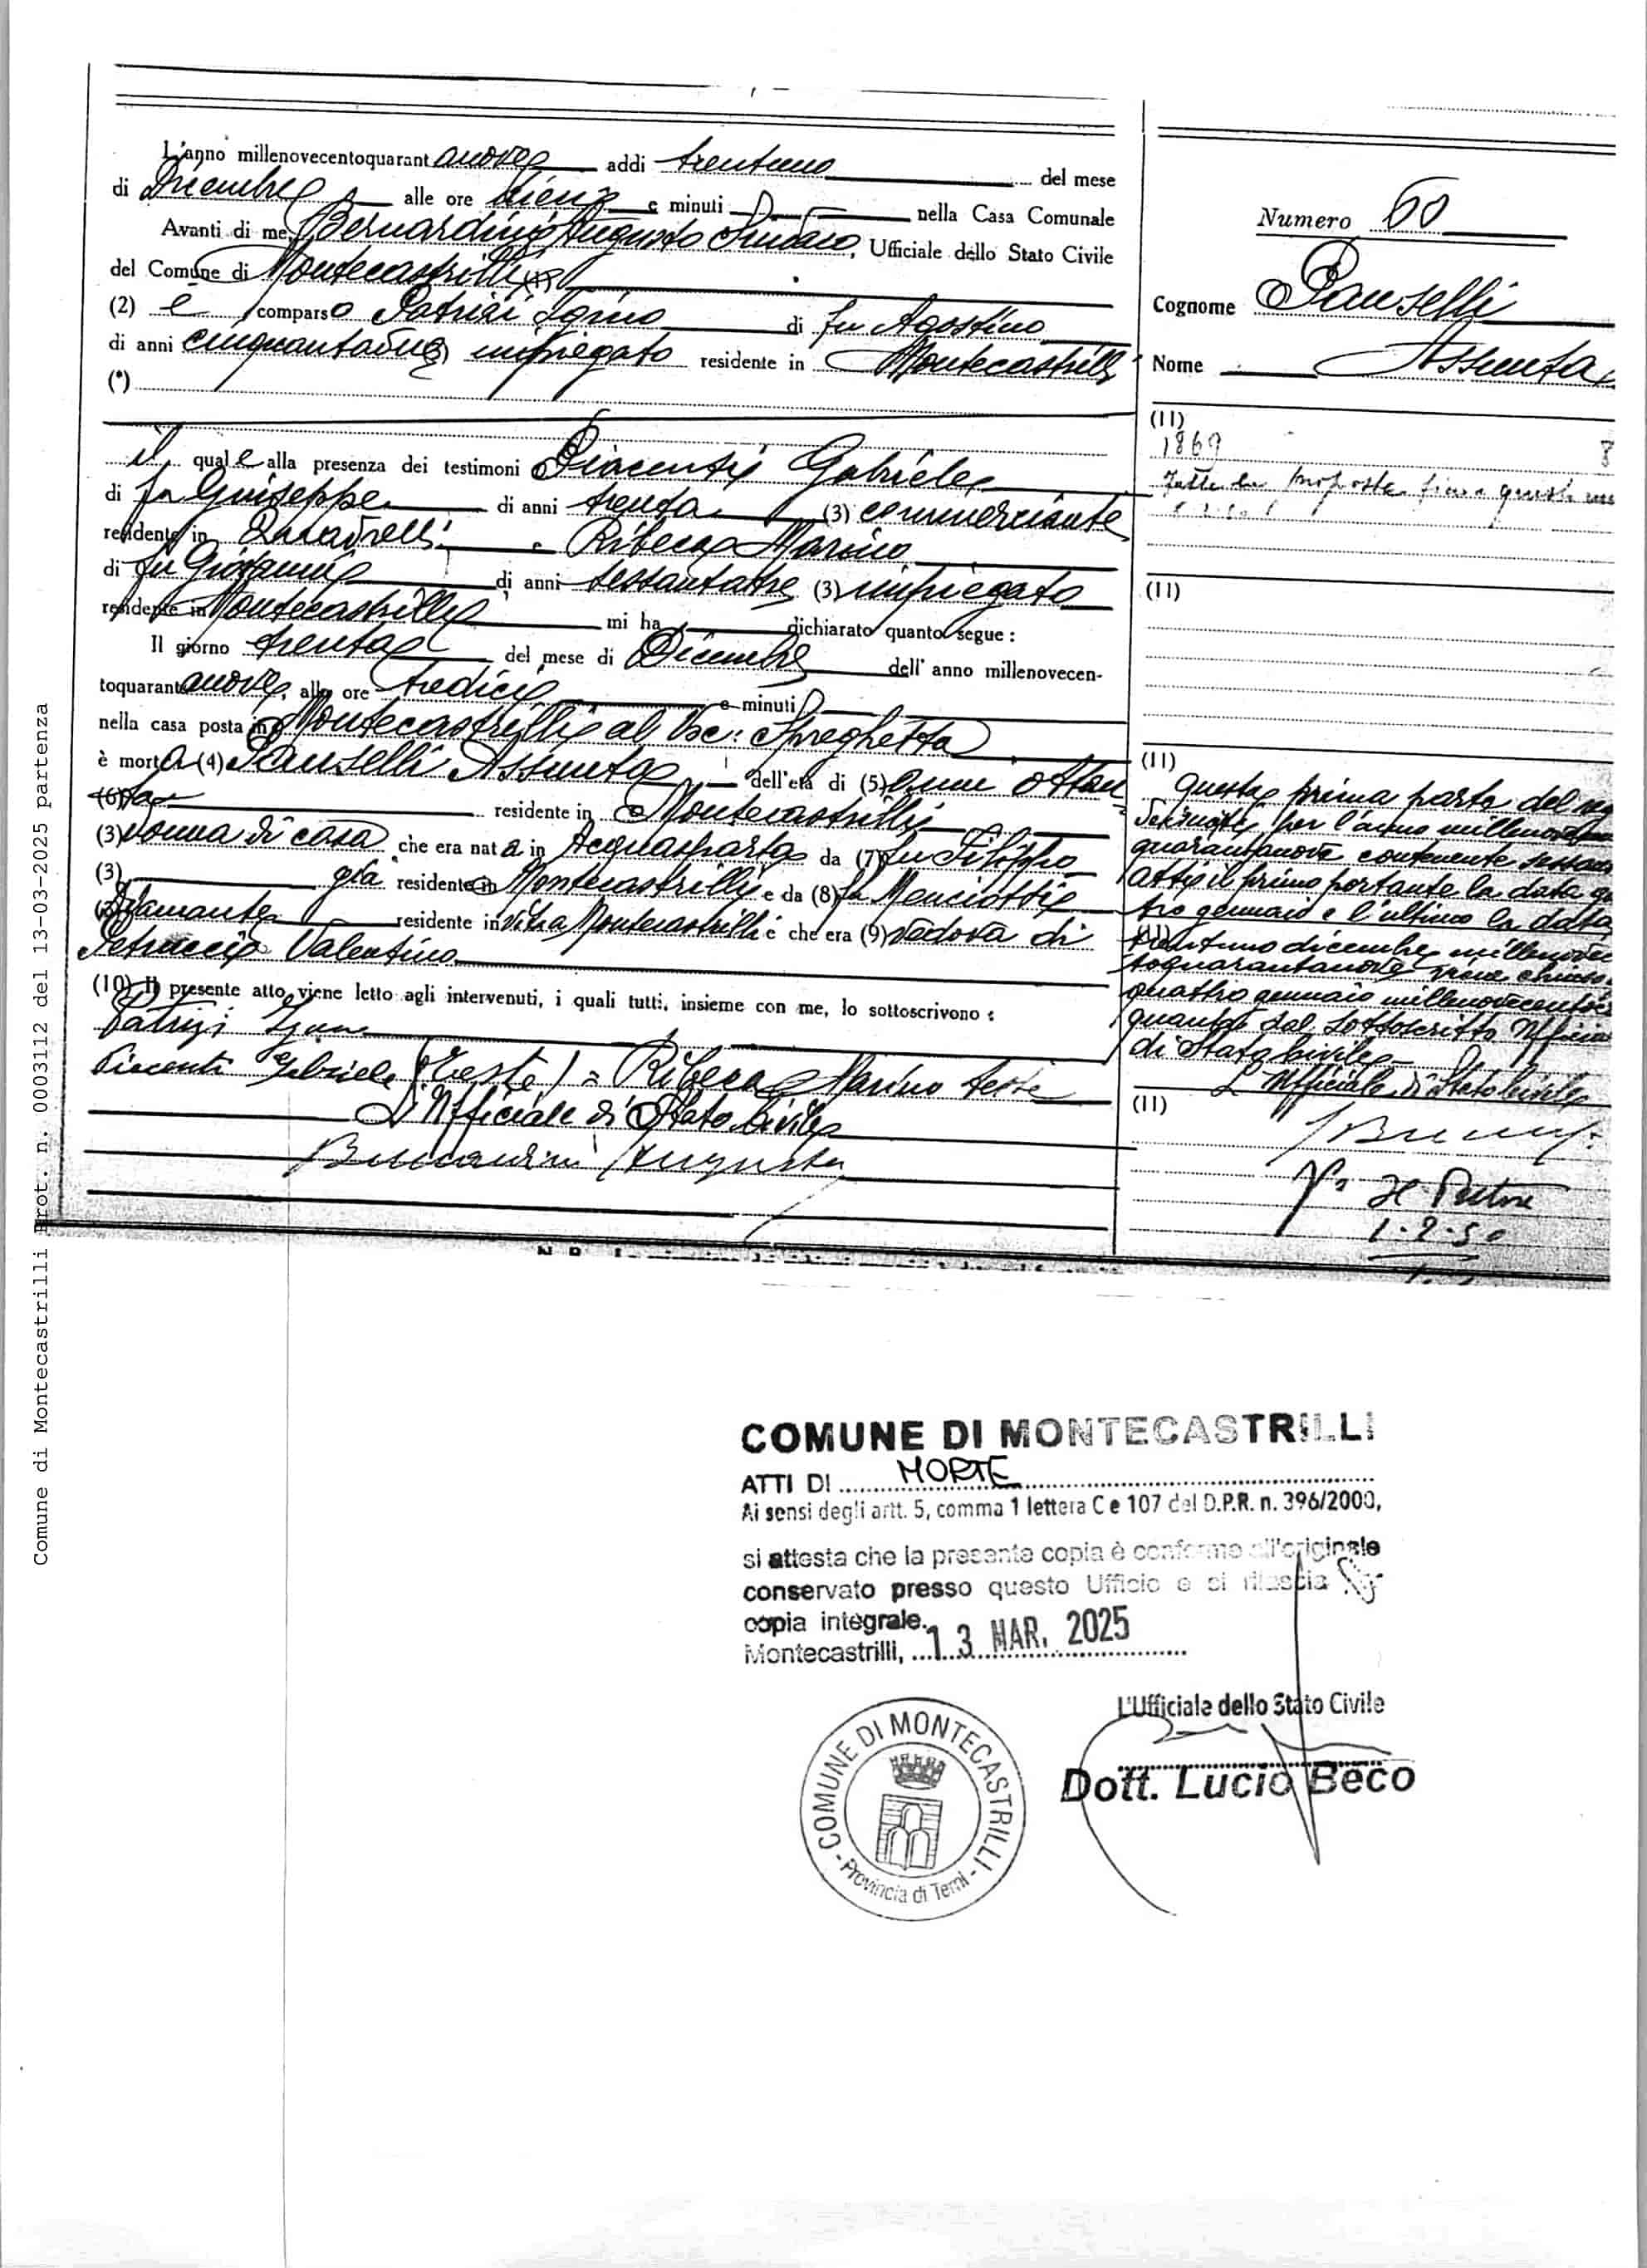 L'anno millenovecentoquarantanove addì trentuno del mese
di Dicembre alle ore dieci e minuti nella Casa Comunale
Avanti di me, Bernardini Augusto Sindaco, Ufficiale dello Stato Civile
del Comune di Montecastrilli (1)
(2) è comparso Patrizi Igino di fu Agostino
di anni cinquantadue (3) impiegato residente in Montecastrilli
(*)
il quale alla presenza dei testimoni Piacenti Gabriele
di fu Guiseppe di anni trenta (3) commerciante
residente in Quadrelli e Ribeca Marino
di fu Giovanni di anni sessantatre (3) impiegato
residente in Montecastrilli mi ha dichiarato quanto segue :
Il giorno trenta del mese di Dicembre dell' anno millenovecen-
toquarantanove, alle ore tredici e minuti
nella casa posta in Montecastrilli al Voc: Spreghetta
è morta (4) Panselli Assunta dell'età di (5) anni ottan
(6) ta residente in Montecastrilli
(3) donna di casa che era nata in Acquasparta da (7) fu Filippo
(3) già residente in Montecastrilli e da (8) fu
Diamante residente in vita Montecastrilli e che era (9) vedova di
Petrucci Valentino
(10) Il presente atto viene letto agli intervenuti, i quali tutti, insieme con me, lo sottoscrivono :
Patrizi Igino
Piacenti Gabriele (Teste) = Ribeca Marino teste
L'Ufficiale di Stato Civile
Bernardini Augusto
Numero 60
Cognome Panselli
Nome Assunta
(11)
1869 8
Fatte le proposte
(11)
(11)
Questa prima parte del
per l'anno
quarantanove contenente
atti il primo portante la data
tro gennaio e l'ultimo la data
(11)
trentuno dicembre
toquarantanove viene chiuso
quattro gennaio
quanta dal sottoscritto
di Stato Civile
L'Ufficiale di Stato Civile
(11)
Il Pretore
1-2-50
Comune di Montecastrilli Prot. n. 0003112 del 13-03-2025 partenza
COMUNE DI MONTECASTRILLI
ATTI DI MORTE
Ai sensi degli artt. 5, comma 1 lettera C e 107 del D.P.R. n. 396/2000,
si attesta che la presente copia è conforme all'originale
conservato presso questo Ufficio e si rilascia
copia integrale.
Montecastrilli, 13 MAR. 2025
L'Ufficiale dello Stato Civile
Dott. Lucio Beco
COMUNE DI MONTECASTRILLI
- Provincia di Terni -